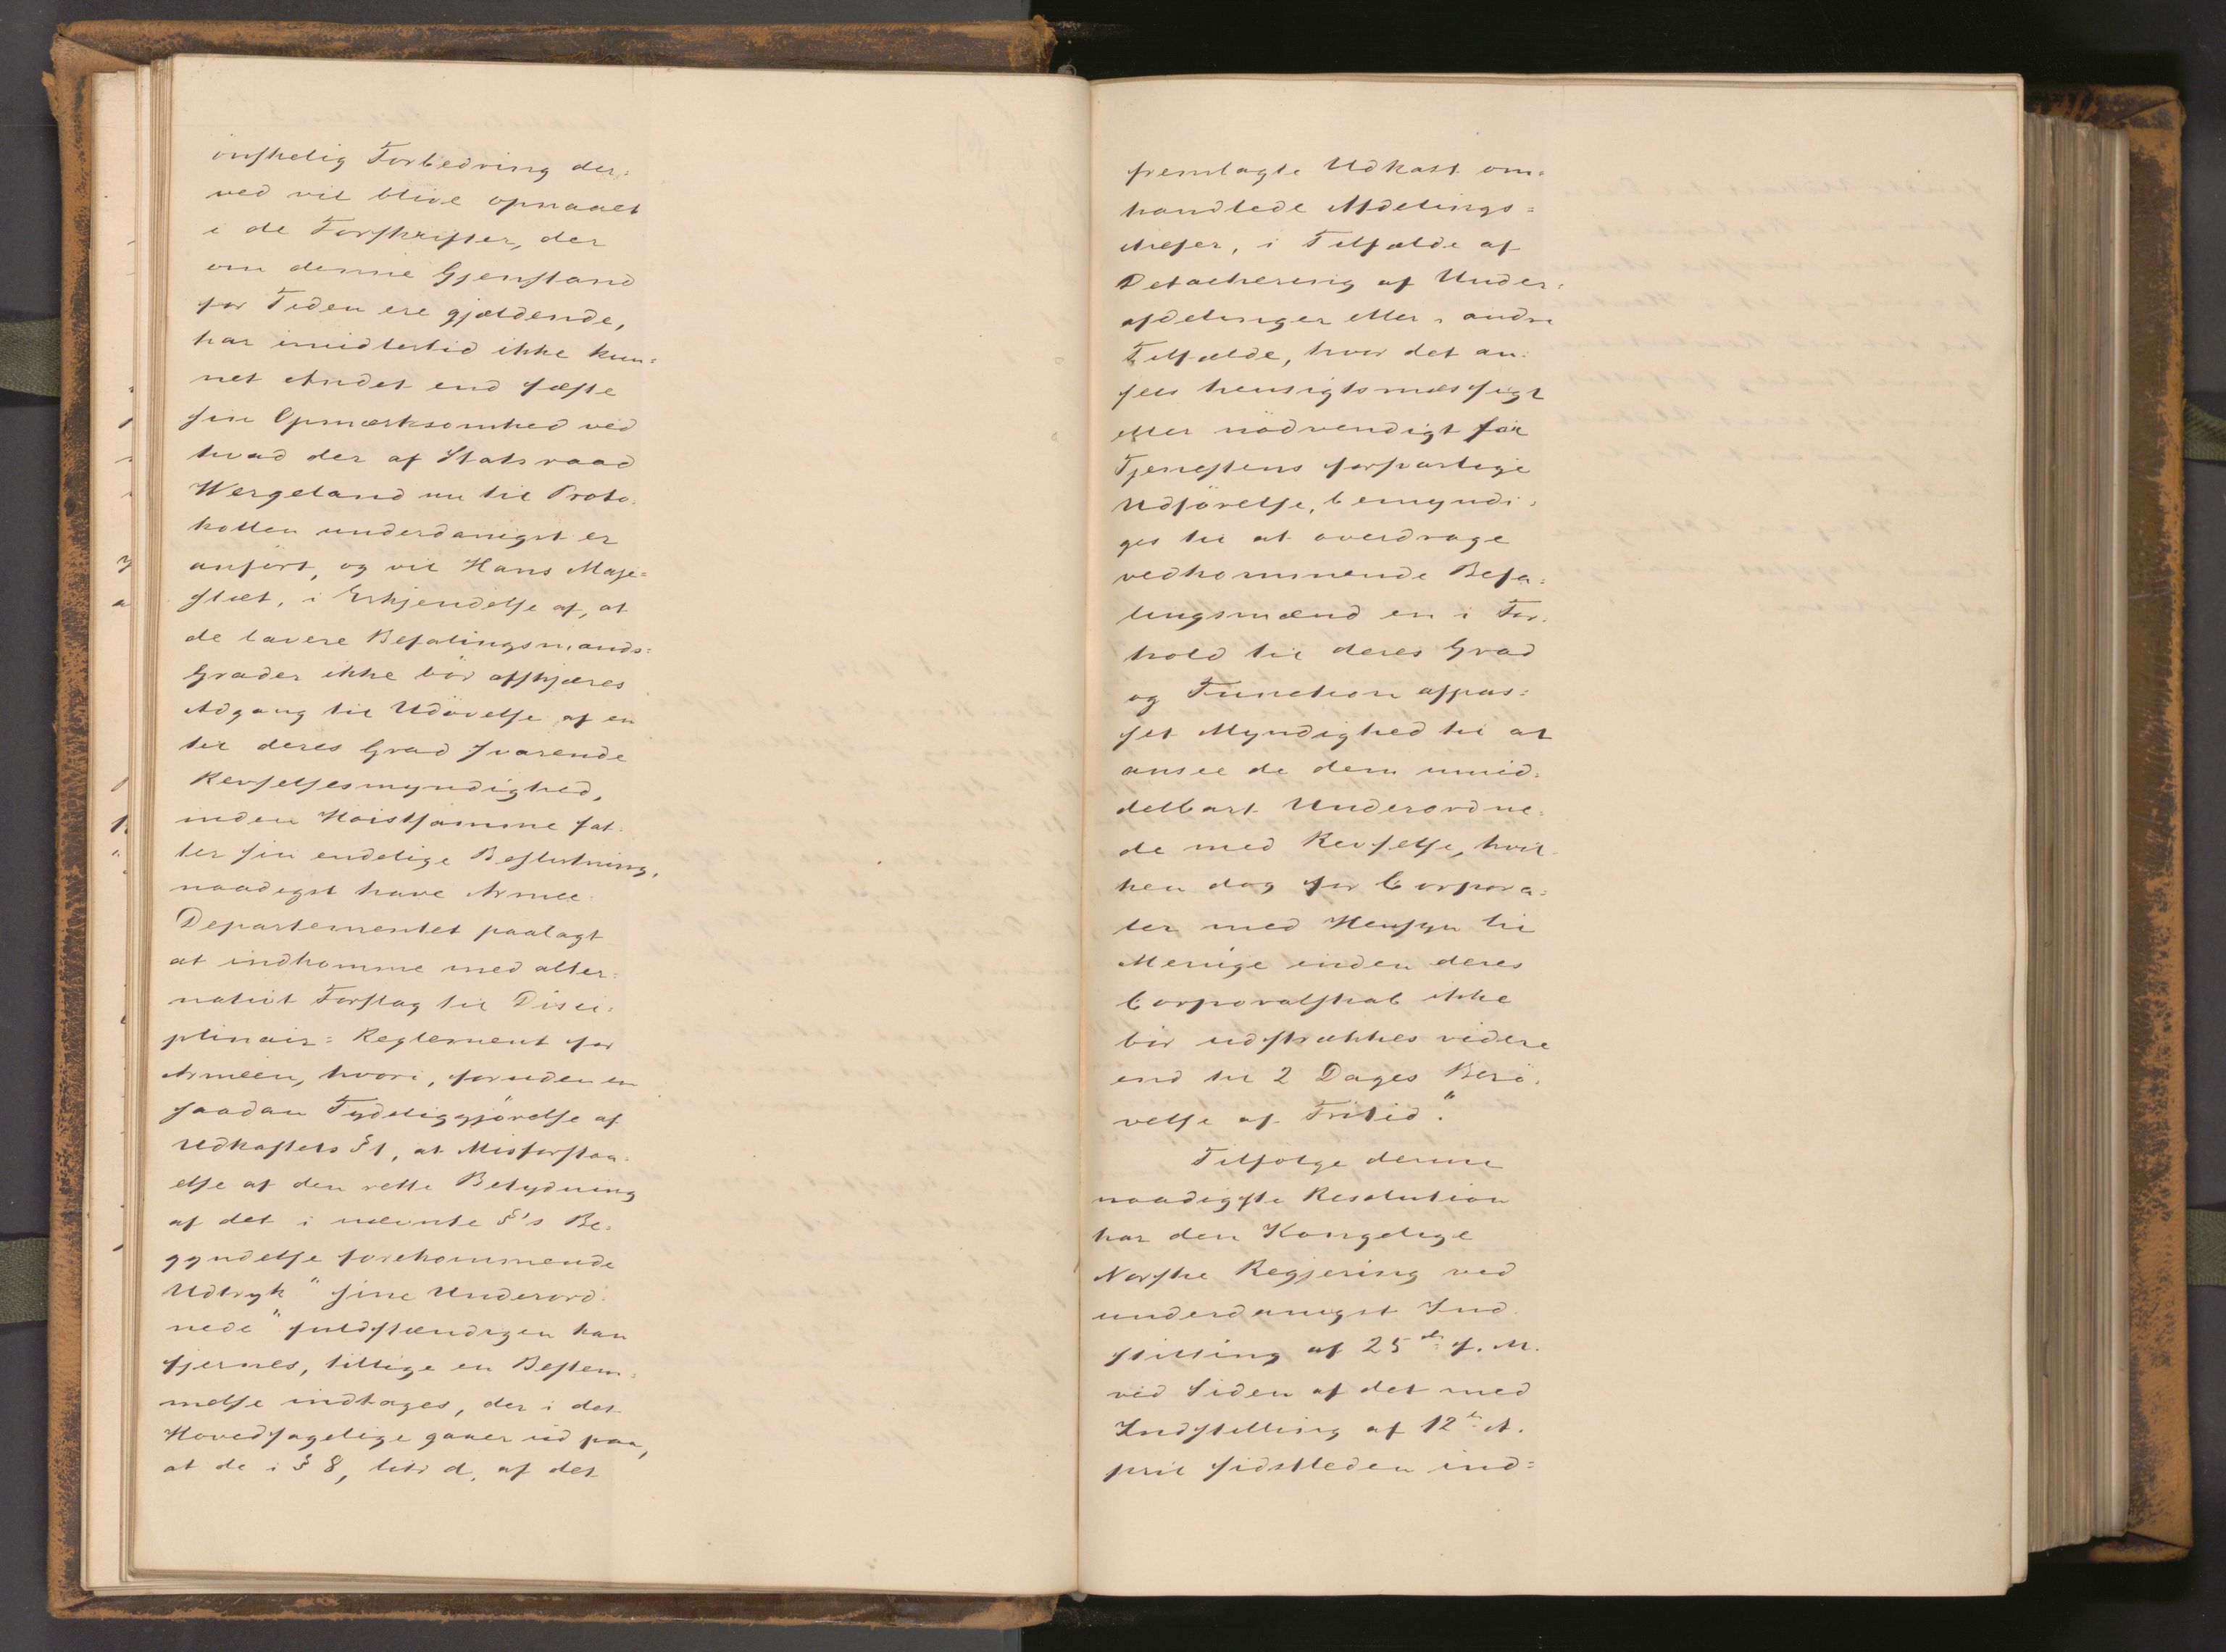 önskelig Forbedring der=
ved vil blive opnaaet
i de Forskrifter, der
om denne Gjenstand
for Tiden ere gjældende,
har imidlertid ikke kun=
net Andet end fæste
sin Opmærksomhed ved
hvad der af Statsraad
Wergeland nu til Proto=
kollen underdanigst er
anført, og vil Hans Maje=
stæt, i Erkjendelse af, at
de lavere Befalingsmands=
Grader ikke bör afskjæres
Adgang til Udövelse af en
til deres Grad svarende
Revselsesmyndighed,
inden Höistsamme fat=
ter sin endelige Beslutning,
naadigst have Armee=
Departementet paalagt
at indkomme med alter=
nativt Forslag til Disci=
plinair=Reglement for
Armeen, hvori, foruden en
saadan Tydeliggjörelse af
Udkastets § 1, at Misforstaa=
else af den rette Betydning
af det i nævnte §'s Be=
gyndelse forekommende
Udtryk "sine Underord=
nede" fuldstændigen kan
fjernes, tillige en Bestem=
melse indtages, der i det
Hovedsagelige gaaer ud paa,
at de i § 8, litr d, af det
fremlagte Udkast om=
handlede Afdelings=
chefer, i Tilfælde af
Detachering af Under=
afdelinger eller i andre
Tilfælde, hvor det an=
sees hensigtsmæssigt
eller nödvendigt för
Tjenestens forsvarlige
Udförelse, bemyndi=
ges til at overdrage
vedkommende Befa=
lingsmænd en i For=
hold til deres Grad
og Function afpas=
set Myndighed til at
ansee de dem umid=
delbart Underordne=
de med Revselse, hvil=
ken dog for Corpora=
ler med Hensyn til
Menige inden deres
Corporalskab ikke
bör udstrækkes videre
end til 2 Dages Berö=
velse af Fritid."
Tilfölge denne
naadigste Resolution
har den Kongelige
Norske Regjering ved
underdanigst Ind=
stilling af 25de f. M.
ved Siden af det med
Indstilling af 12te A=
pril sidstleden ind=